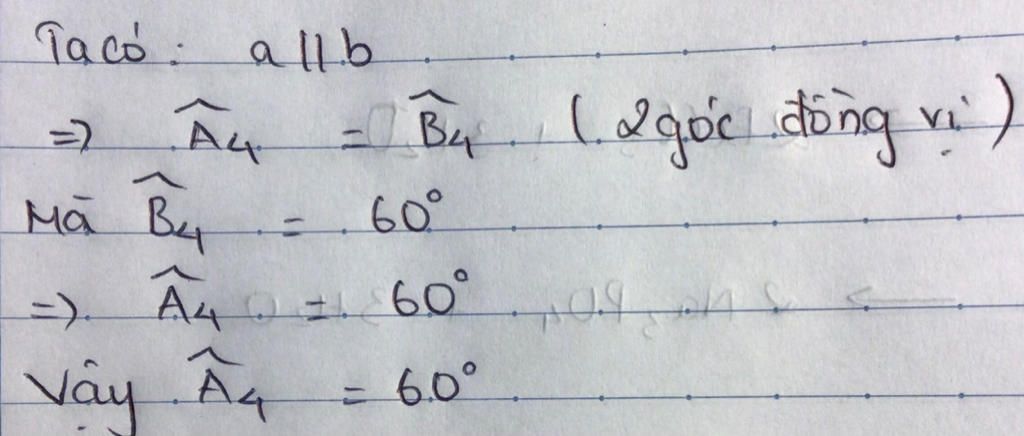 Ta có: a // b
=> Â₄ = B̂₄ (2 góc đồng vị)
Mà B̂₄ = 60°
=> Â₄ = 60°
Vậy Â₄ = 60°